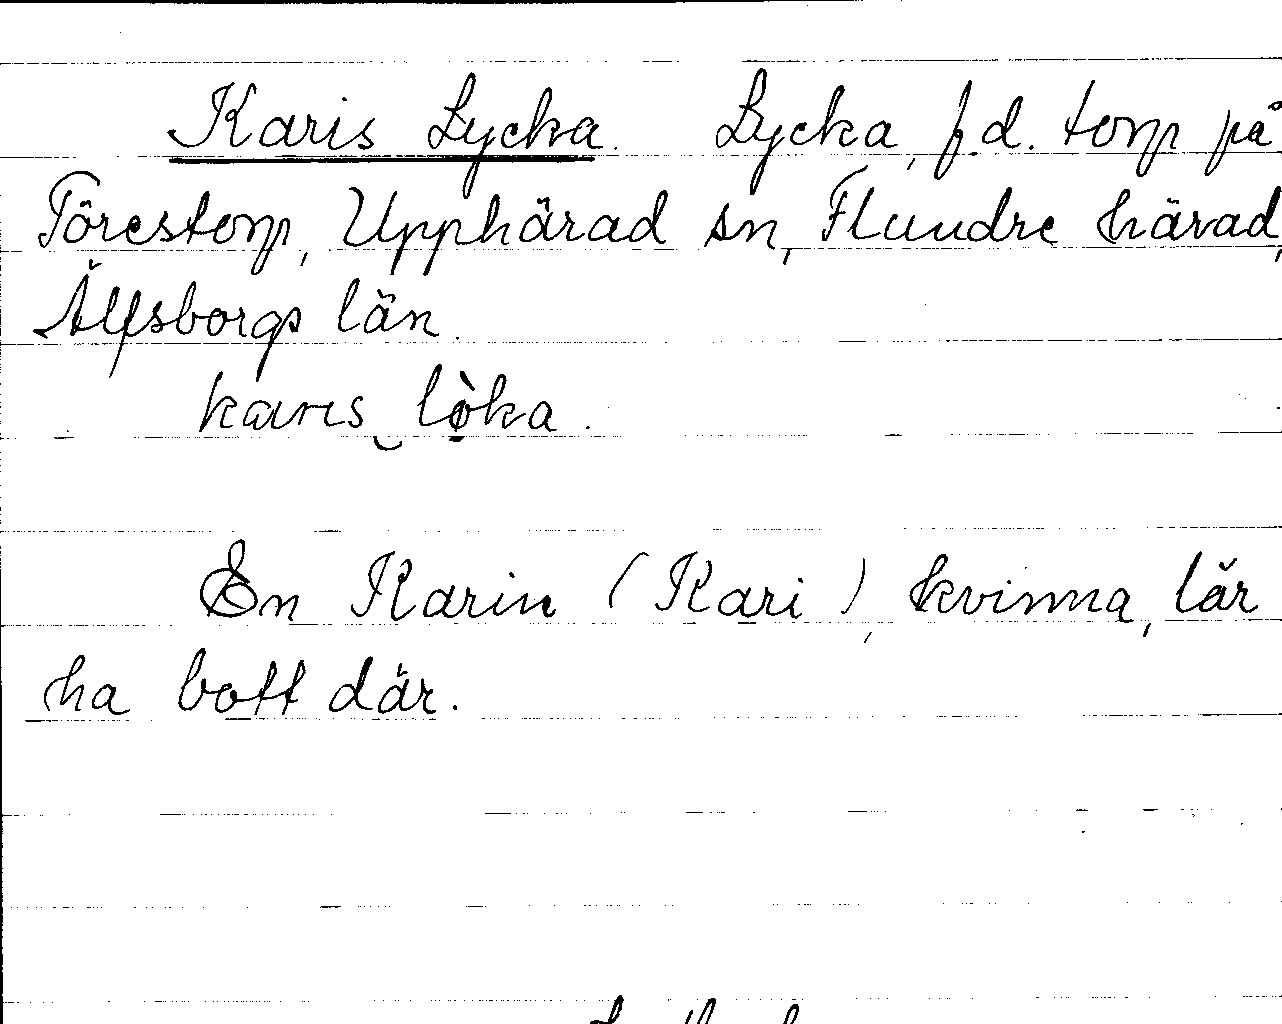 Karis Lycka. Lycka, f.d. torp på
Törestorp, Upphärad sn, Flundre härad,
Älfsborgs län.
karıs lø̀ka.
En Karin (Kari), kvinna, lär
ha bott där.